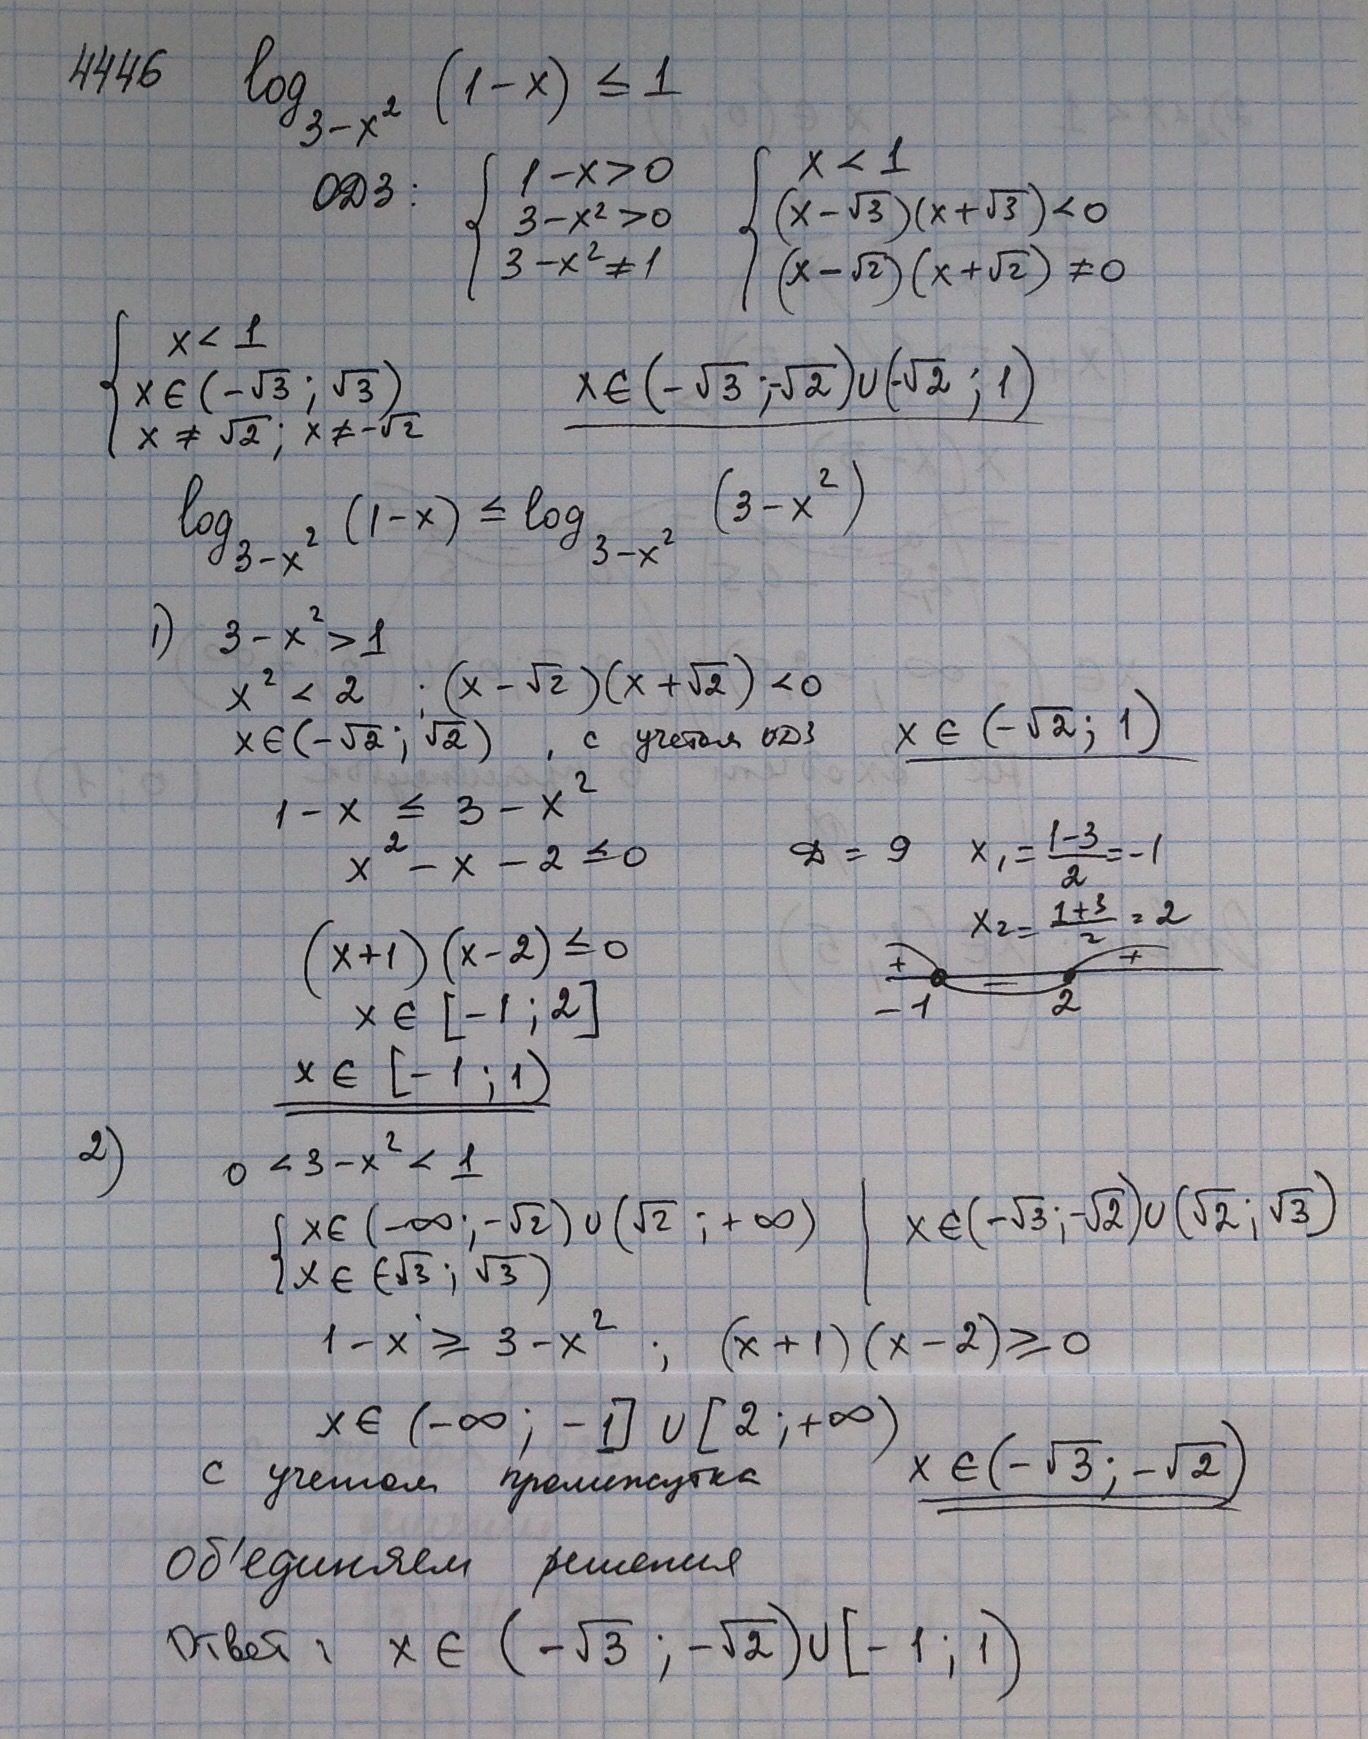 4446 log_{3-x^2} (1-x) ≤ 1
ОДЗ: { 1-x>0 { x < 1
3-x²>0 (x-√3)(x+√3)<0
3-x²≠1 (x-√2)(x+√2)≠0
{ x < 1
x∈(-√3; √3) x∈(-√3;-√2)∪(-√2; 1)
x ≠ √2; x≠-√2
log_{3-x²} (1-x) ≤ log_{3-x²} (3-x²)
1) 3-x²>1
x² < 2 ; (x-√2)(x+√2)<0
x∈(-√2; √2) , с учетом ОДЗ x∈(-√2; 1)
1-x ≤ 3-x²
x²-x-2≤0 D = 9 x₁=(1-3)/2=-1
x₂=(1+3)/2=2
(x+1)(x-2)≤0 + − +
x∈[-1; 2] -1 2
x∈[-1; 1)
2) 0<3-x²<1
{ x∈(-∞;-√2)∪(√2;+∞) | x∈(-√3;-√2)∪(√2; √3)
x∈(-√3; √3)
1-x≥3-x² ; (x+1)(x-2)≥0
x∈(-∞; -1]∪[2;+∞)
с учетом промежутка x∈(-√3; -√2)
Об'единяем решения
Ответ: x∈(-√3; -√2)∪[-1; 1)